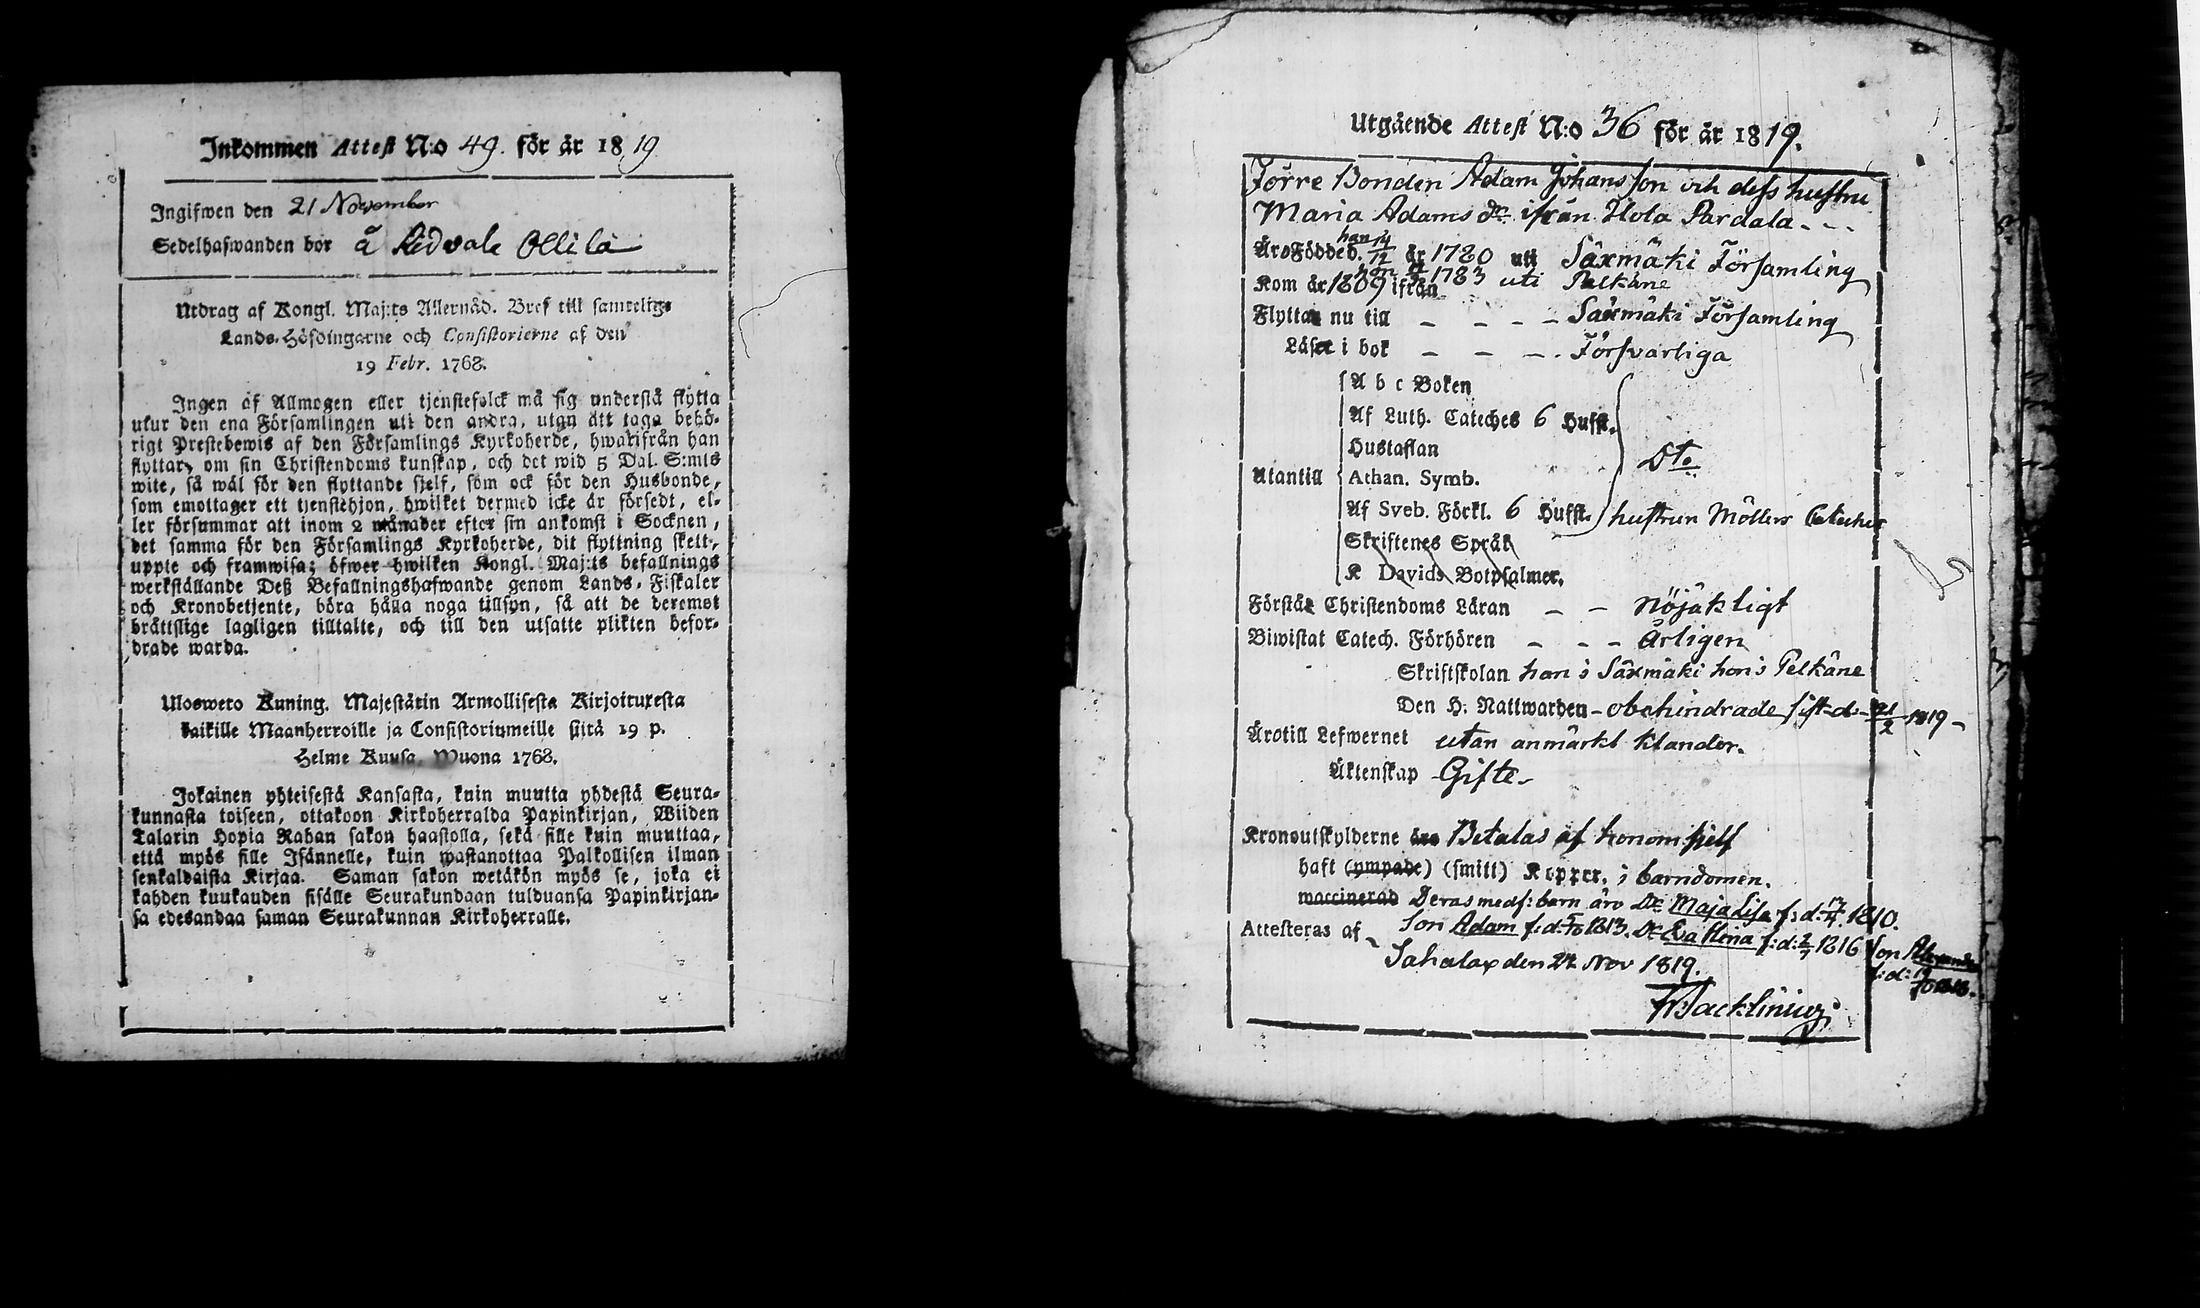 Inkommen Attest N:o 49. för år 1819
Ingifwen den 21 November
Sedelhafwanden bor å Ridvala Ollila
Utdrag af Kongl. Maj:ts Allernåd. Bref till samtelige
Lands-Höfdingarne och Consistorierne af den
19 Febr. 1768.
Ingen af Allmogen eller tjenstefolck må sig understå flytta
utur den ena Församlingen uti den andra, utan att taga behö-
rigt Prestebewis af den Församlings Kyrkoherde, hwarifrån han
flyttar, om sin Christendoms kunskap, och det wid 5 Dal. S:mts
wite, så wäl för den flyttande sjelf, som ock för den Husbonde,
som emottager ett tjenstehjon, hwilket dermed icke är försedt, el-
ler försummar att inom 2 månader efter sin ankomst i Socknen,
det samma för den Församlings Kyrkoherde, dit flyttning skett,
uppte och framwisa; öfwer hwilken Kongl. Maj:ts befallnings
werkställande Deß Befallningshafwande genom Lands-Fiskaler
och Kronobetjente, böra hålla noga tillsyn, så att de deremot
bråttslige lagligen tilltalte, och till den utsatte plikten befor-
drade warda.
Uloswero Kuning. Majestätin Armollisesta Kirjoituxesta
kaikille Maanherroille ja Consistoriumeille siitä 19 p.
Helme Kuusa, Wuona 1768.
Jokainen yhteisestä Kansasta, kuin muutta yhdestä Seura-
kunnasta toiseen, ottakoon Kirkoherralda Papinkirjan, Wiiden
Talarin Hopia Rahan sakon haastolla, sekä sille kuin muuttaa,
että myös sille Isännelle, kuin wastanottaa Palkollisen ilman
senkaldaista Kirjaa. Saman sakon wetäkön myös se, joka ei
kahden kuukauden sisälle Seurakundaan tulduansa Papinkirjan-
sa edesandaa saman Seurakunnan Kirkoherralle.
Utgående Attest N:o 36 för år 1819.
Förre Bonden Adam Johansson och dess hustru
Maria Adams dr ifrån Hola Pardala - - -
Äro Födde d. han 14/12 år 1780 uti Säxmäki Församling
hon 1783 uti Pelkäne
Kom år 1809 ifrån
Flyttar nu till - - - - Säxmäki Församling
Läser i bok - - - . Försvarliga
A b c Boken
Af Luth. Cateches 6 Hufst.
Hustaflan
Utantill Athan. Symb. Dto
Af Sveb. Förkl. 6 Hufst. hustrun Möllers Cateches
Skriftenes Språk
K Davids Botpsalmer.
Förstår Christendoms Läran - - nöjaktligt
Biwistat Catech. Förhören - - - Årligen
Skriftskolan han i Säxmäki hon i Pelkäne
Den H. Nattwarden - obehindrade sist d. 21/2 1819 -
Äro till Lefwernet utan anmärkt klander.
Äktenskap - Gifte -
Kronoutskylderne äro Betalas af honom sjelf
haft (ympade) (smitt) Koppor. i barndomen.
waccinerad Deras medf: barn äro Dr Maja Lisa f: d: 17/4 1810.
Son Adam f: d: 5/10 1813. Dr Eva Stina f: d: 2/7 1816 Son Alexander
f: d: 19/10 1818.
Attesteras af
Sahalax den 21 Nov 1819.